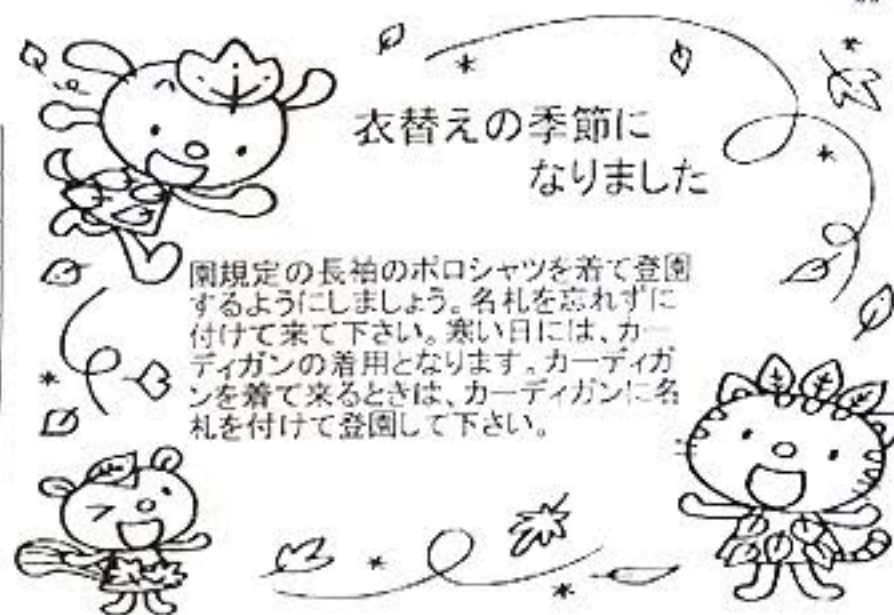 衣替えの季節に
なりました
園規定の長袖のポロシャツを着て登園
するようにしましょう。名札を忘れずに
付けて来て下さい。寒い日には、カー
ディガンの着用となります。カーディガ
ンを着て来るときは、カーディガンに名
札を付けて登園して下さい。